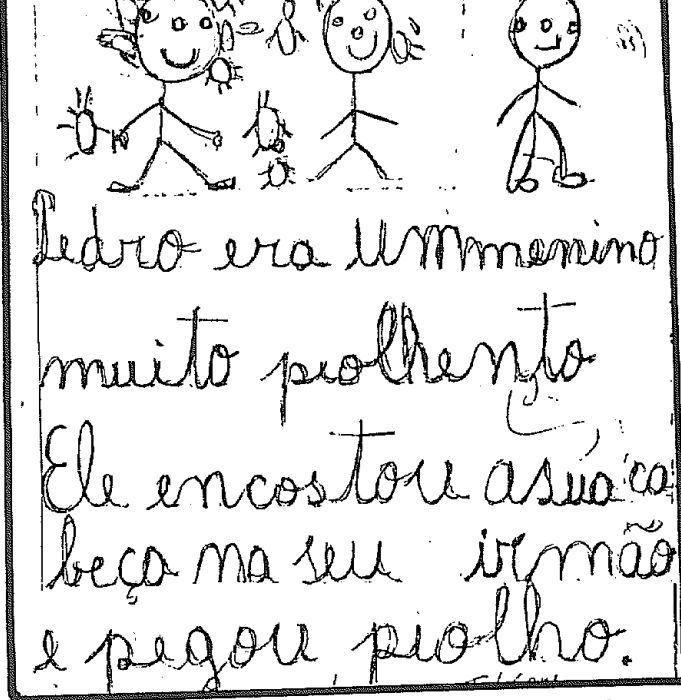 Pedro era Um menino
muito piolhento
Ele encostou a sua ca
beça na seu irmão
e pegou piolho.